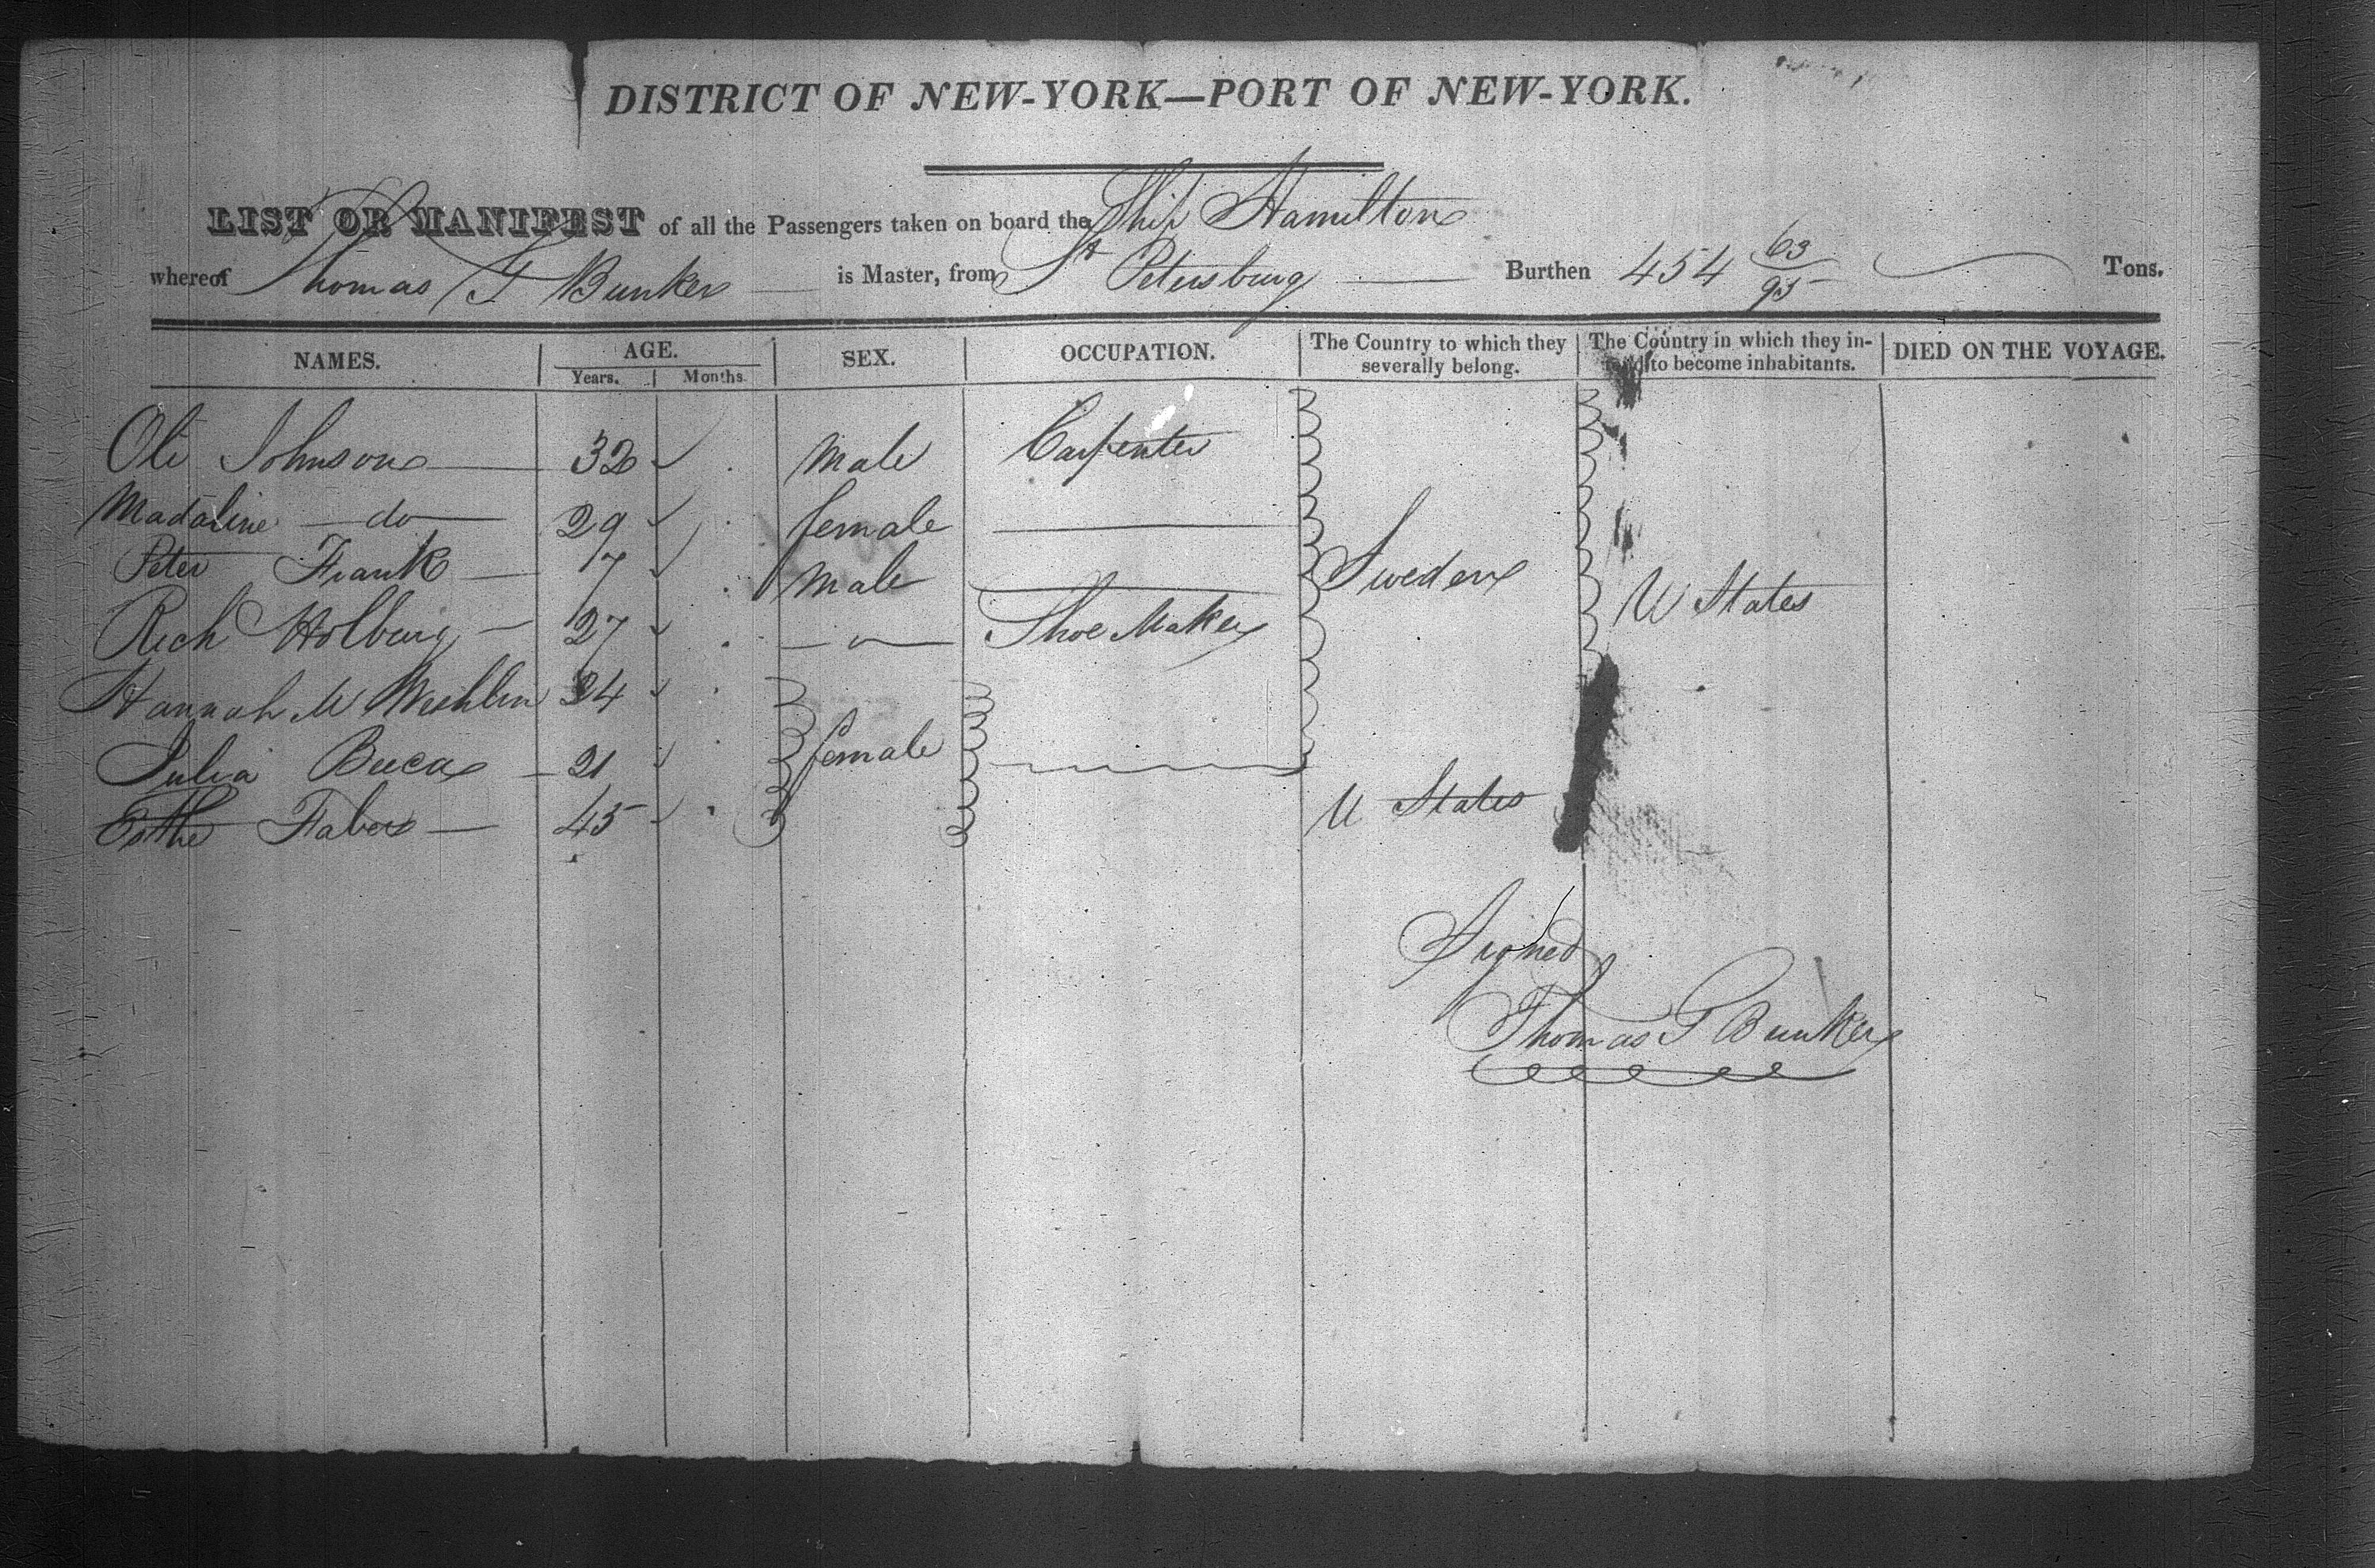 DISTRICT OF NEW-YORK—PORT OF NEW-YORK.
LIST OR MANIFEST of all the Passengers taken on board the Ship Hamilton
whereof Thomas T Bunker is Master, from St Petersburg Burthen 454 63/95 Tons.
NAMES. AGE. SEX. OCCUPATION. The Country to which they severally belong. The Country in which they intend to become inhabitants. DIED ON THE VOYAGE.
Years. Months.
Ole Johnson 32 male Carpenter
Madaline do 29 female
Peter Frank 7 male Sweden U States
Rich Holburg 27 Shoe Maker
Hannah M 34
Julia 21 female
Esthe Fabers 45 U States
Signed
Thomas T Bunker